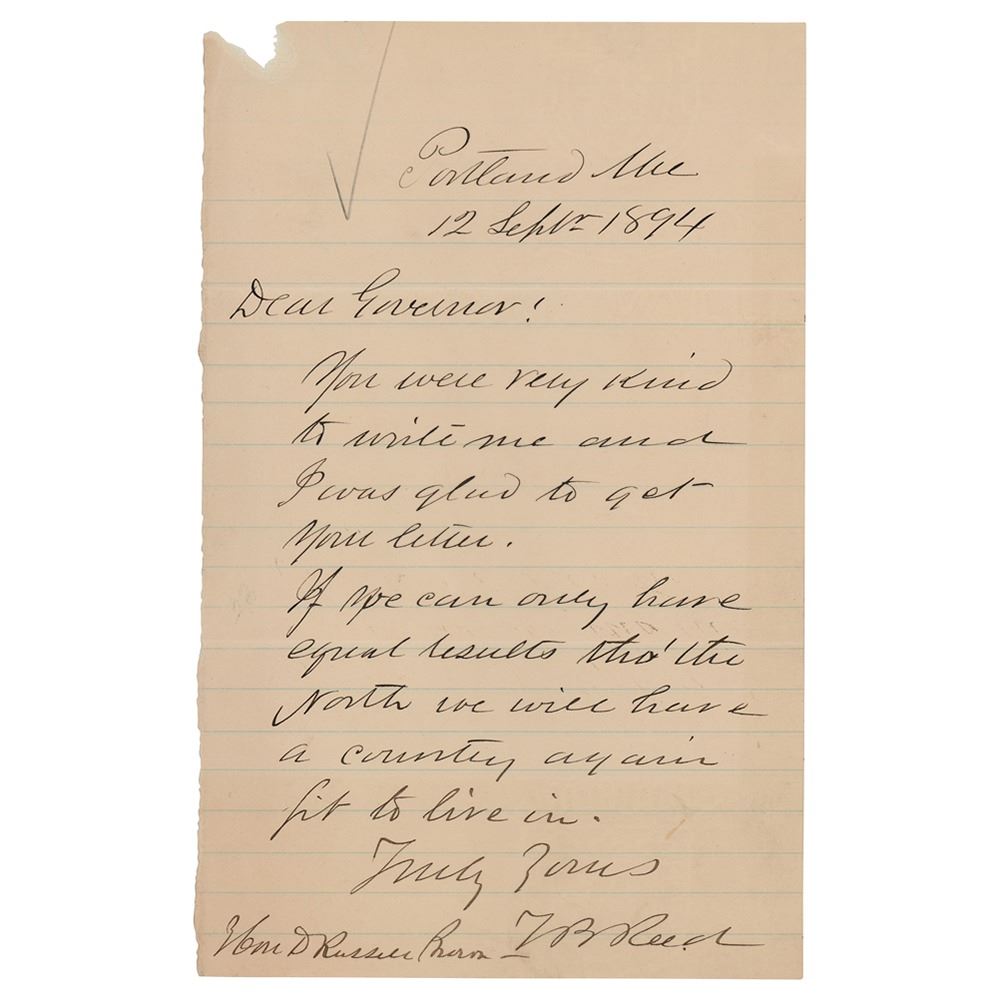 Portland Me
12 Septr 1894
Dear Governor!
You were very kind
to write me and
I was glad to get
your letter.
If we can only have
equal results thro' the
North we will have
a country again
fit to live in.
Truly Yours
T B Reed
Hon D Russell Brown